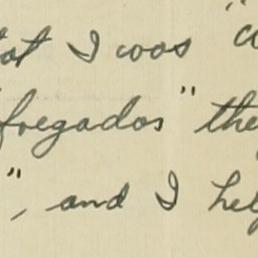 I was "
fregados" the
", and I hel